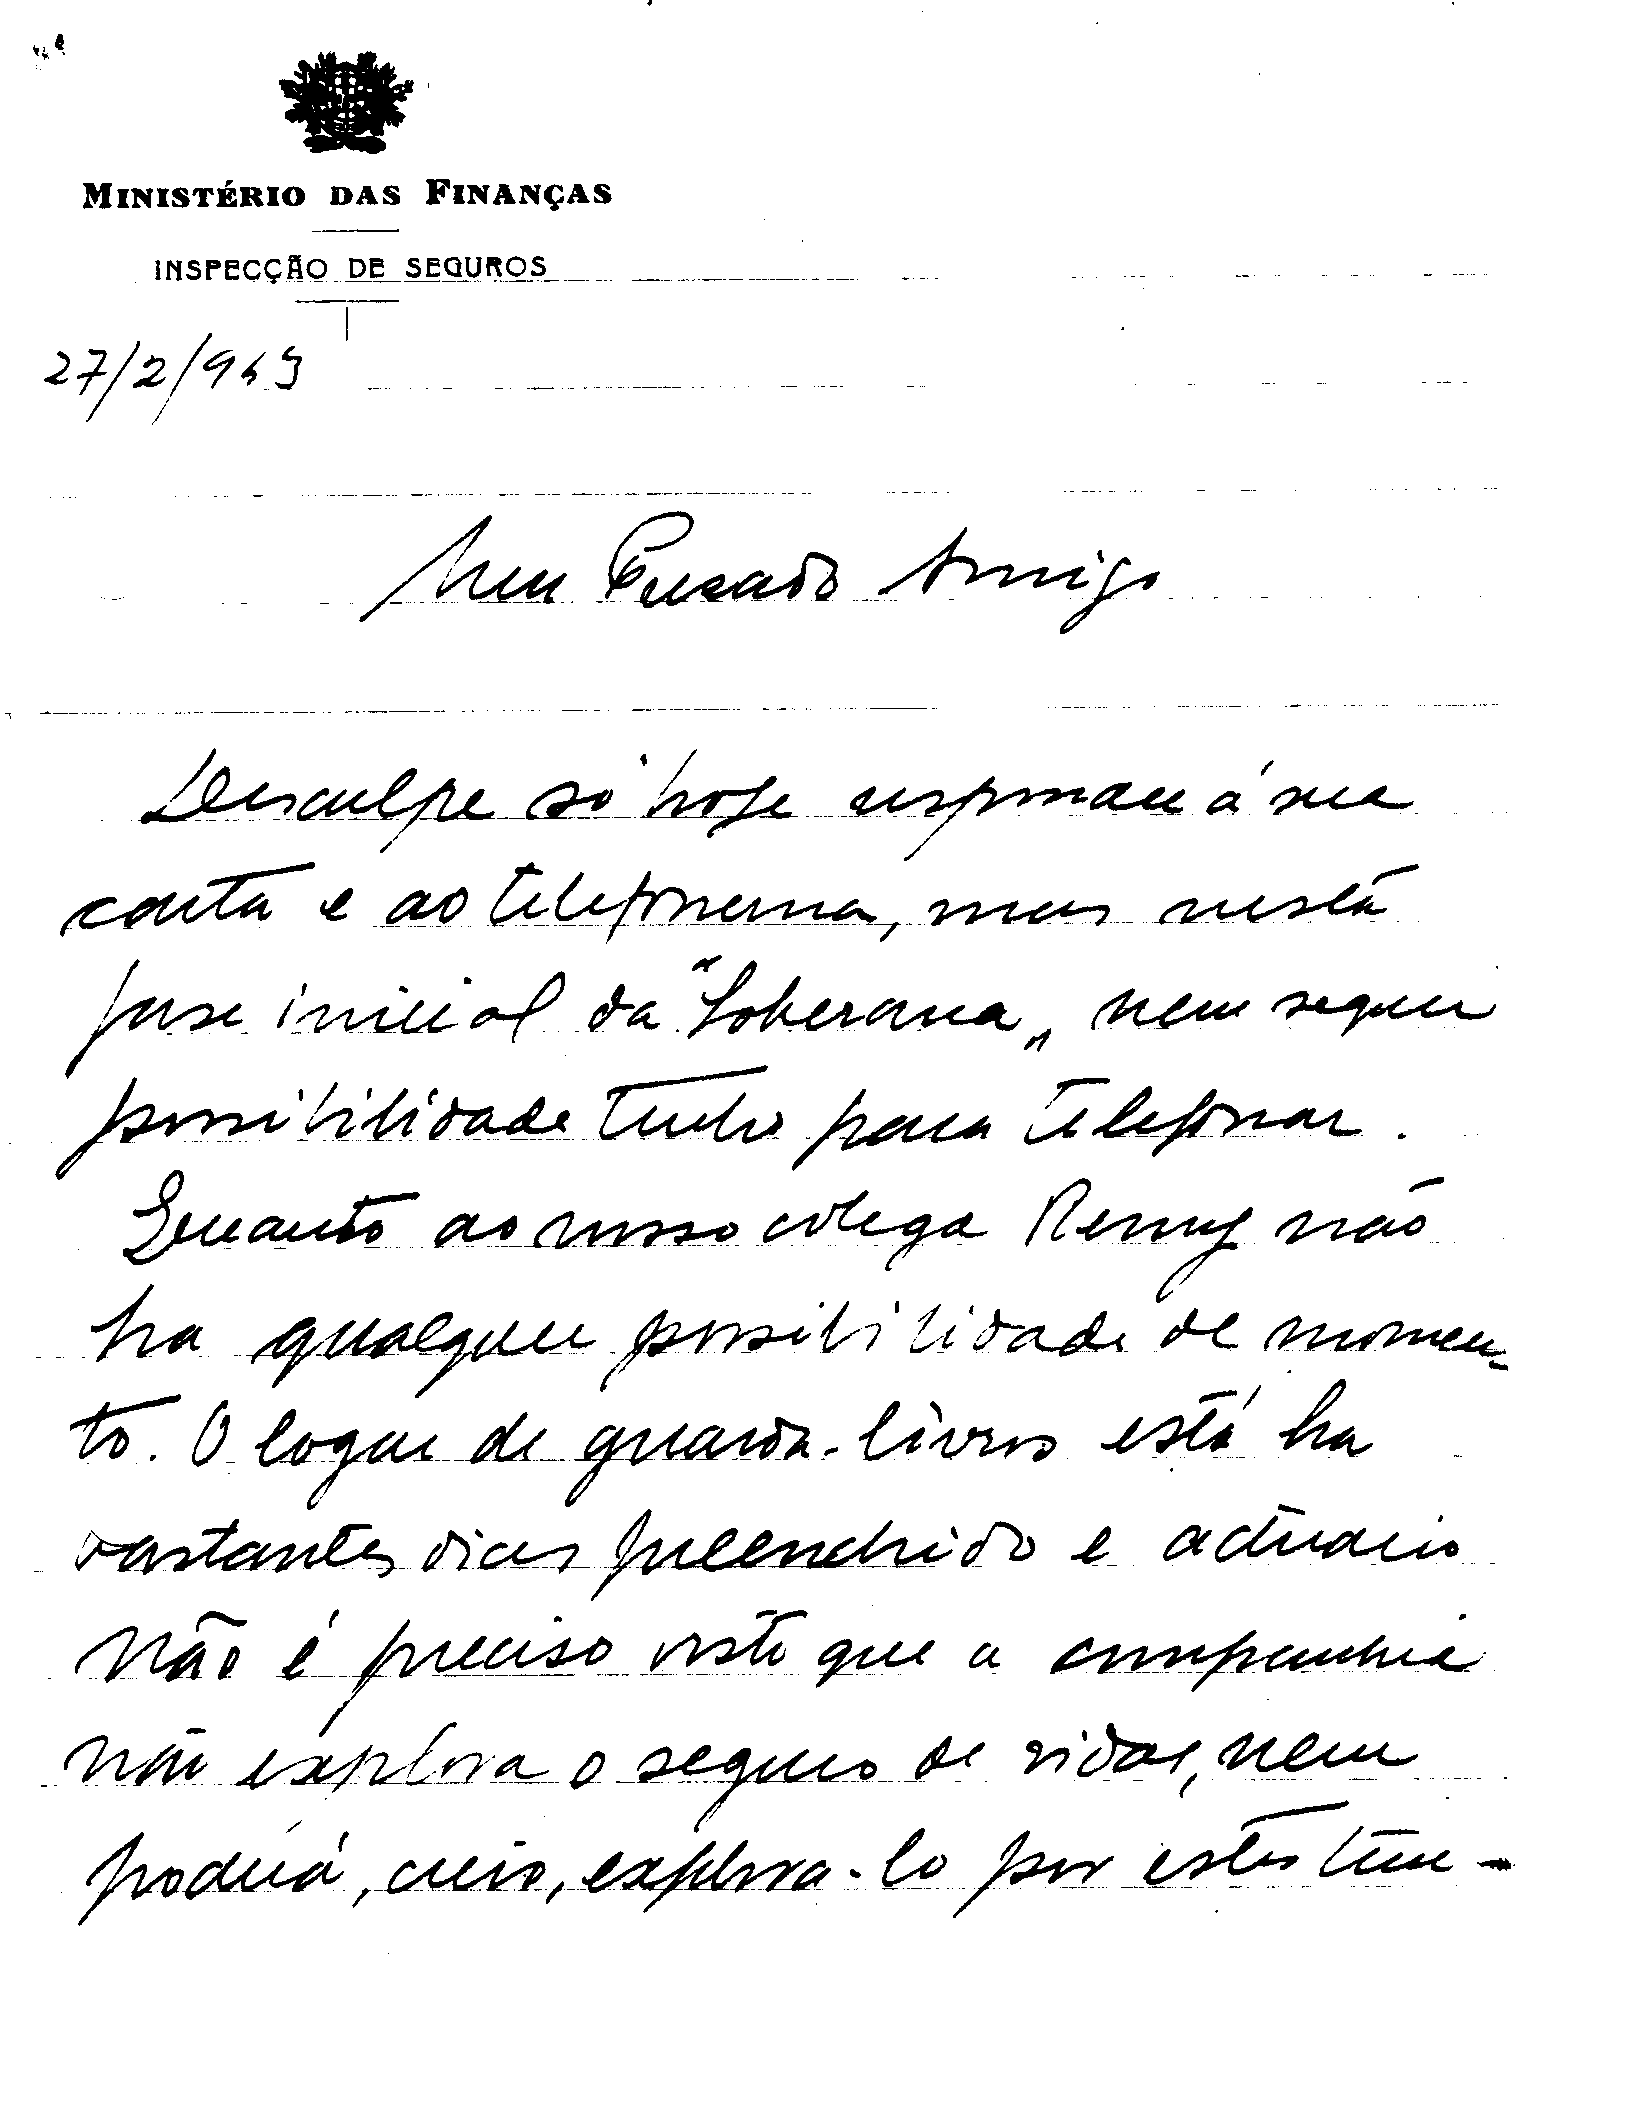 MINISTÉRIO DAS FINANÇAS
INSPECÇÃO DE SEGUROS
27/2/943
Meu Prezado Amigo
Desculpe só hoje responder á sua
carta e ao telefonema, mas nesta
fase inicial da "Soberana" nem sequer
possibilidade tenho para telefonar.
Quanto ao nosso colega Remy não
ha qualquer possibilidade de momen-
to. O logar de guarda-livros está ha
bastantes dias preenchido e actuario
não é preciso visto que a companhia
não explora o seguro de vidas, nem
poderá, creio, explora-lo por estes tem-